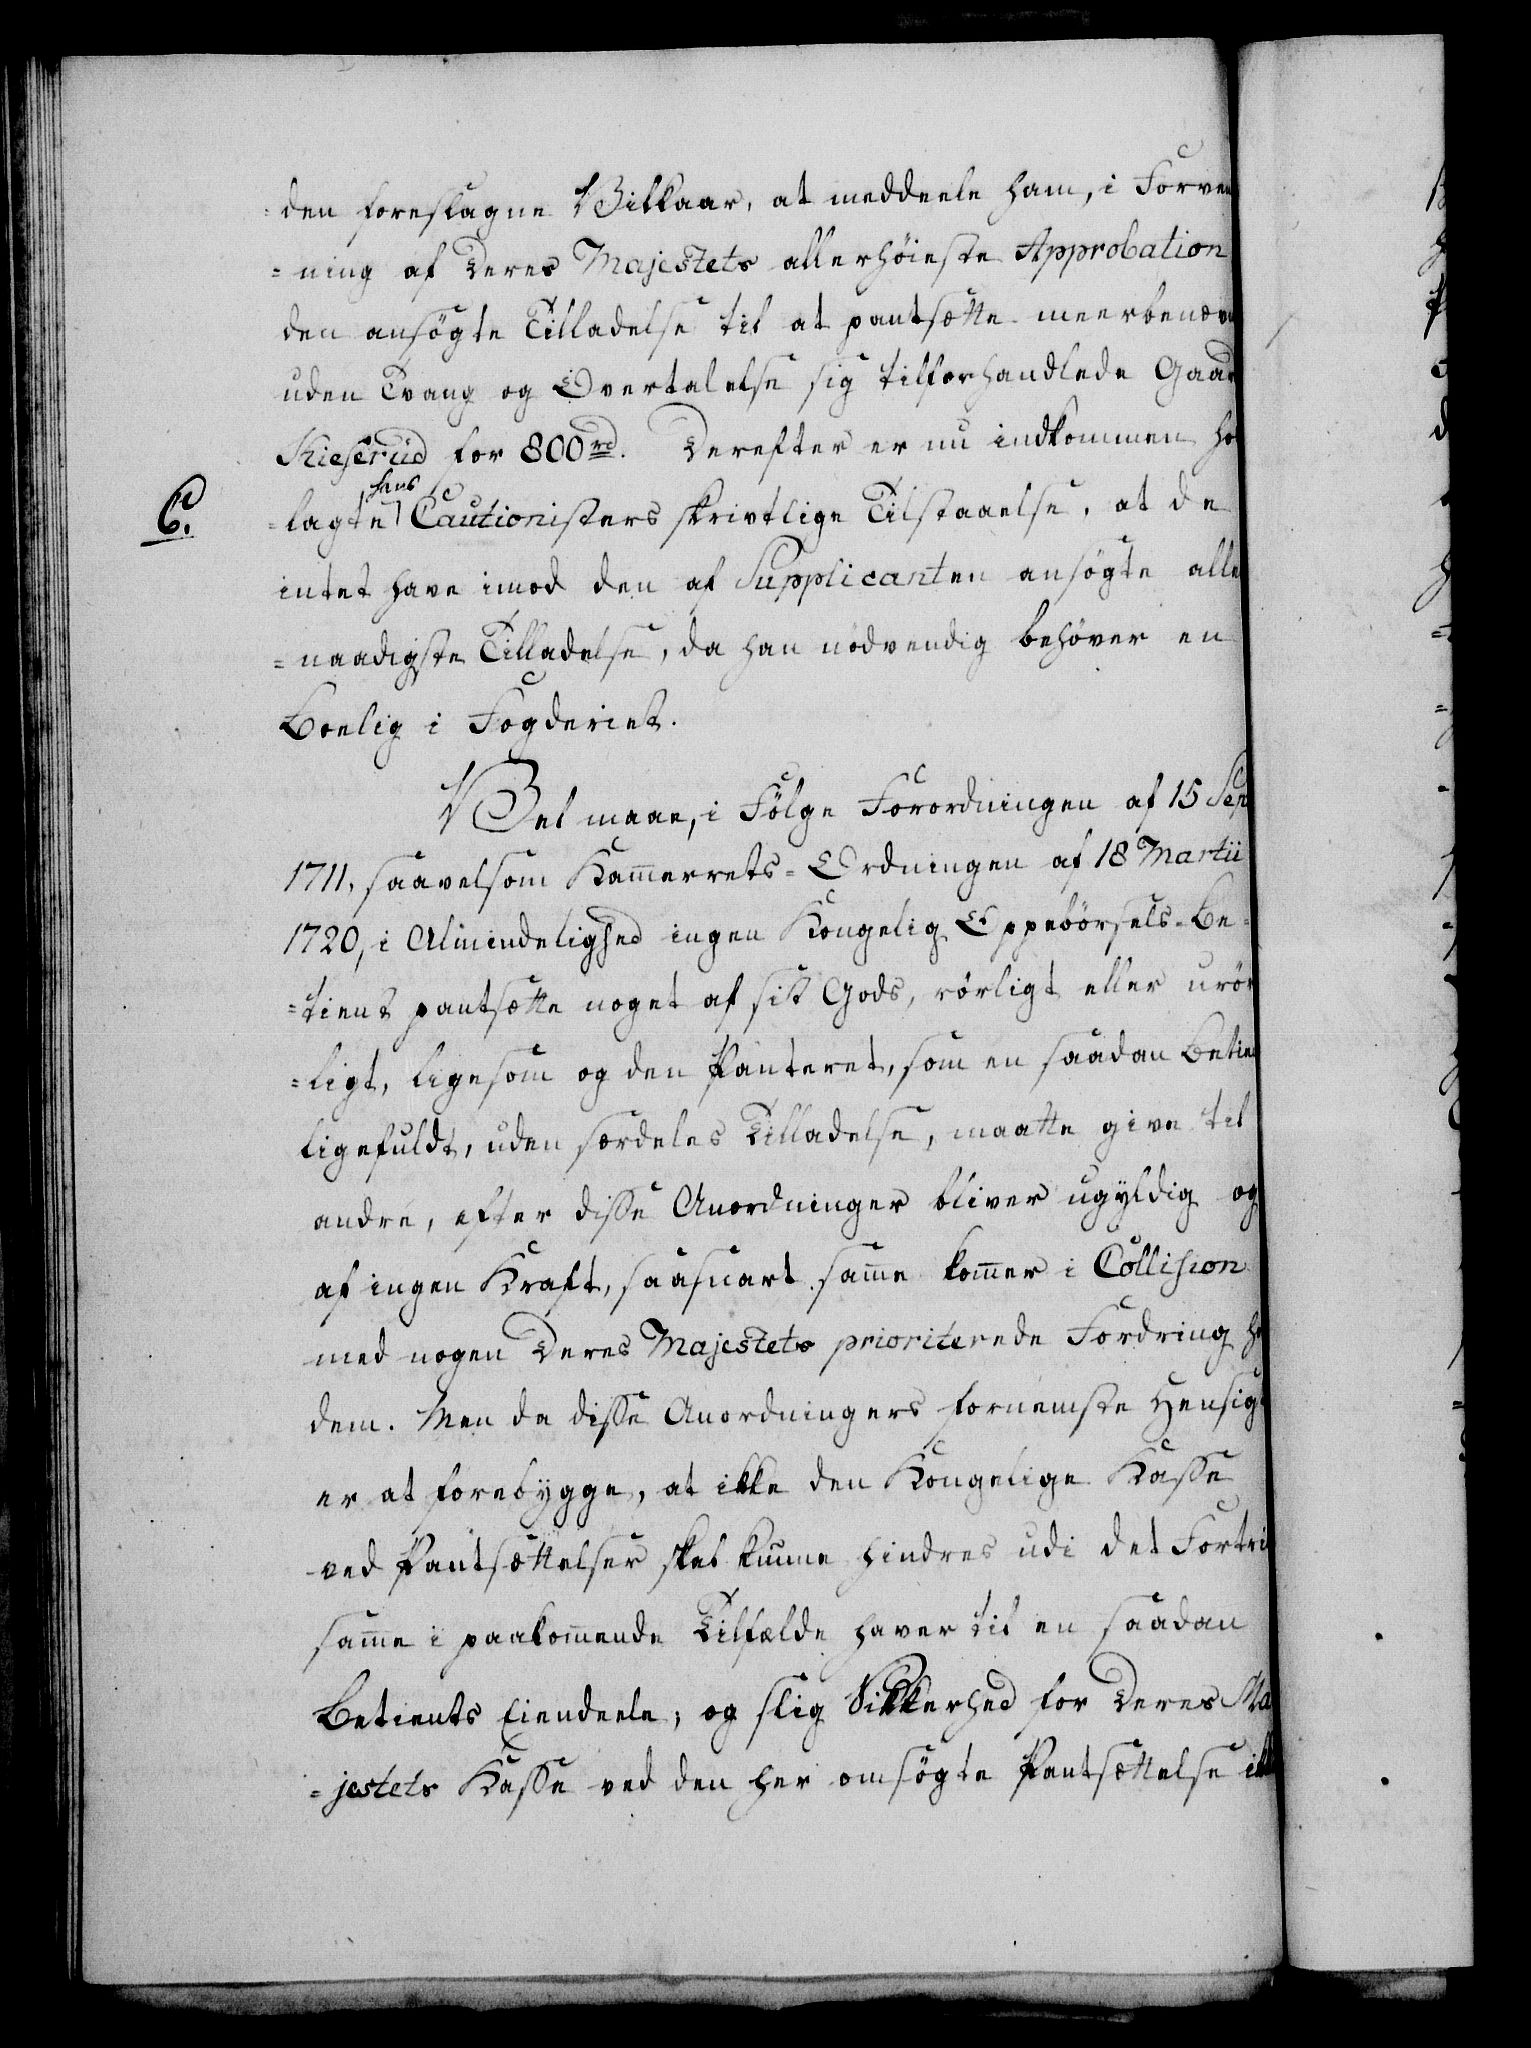 den foreslagne Vilkaar, at meddeele ham, i Forven
=ning af Deres Majestets allerhöieste Approbation
den ansögte Tilladelse til at pantsætte meerbenævn
uden Tvang og Overtalelse sig tilforhandlede Gaar
Kieserüd for 800 rd. Derefter er nu indkommen ho
C.
=lagte hans Cautionisters skrivtlige Tilstaaelse, at de
intet have imod den af Supplicanten ansögte alle
=naadigste Tilladelse, da han nödvendig behöver en
Boelig i Fogderiet.
Vel maae, i Fölge Forordningen af 15 Sep
1711, saavelsom Kammerrets=Ordningen af 18 Martii
1720, i Almindelighed ingen Kongelig Oppebörsels=Be=
=tient pantsætte noget af sit Gods, rörligt eller urör
=ligt, ligesom og den Panteret, som en saadan Betien
ligefuldt, uden særdeles Tilladelse, maatte give til
andre, efter disse Anordninger bliver ugyldig og
af ingen Kraft, saasnart samme kommer i Collision
med nogen Deres Majestets prioriterede Fordring ho
dem. Men da disse Anordningers fornemste Hensigt
er at forebygge, at ikke den Kongelige Kasse
ved Pantsættelser skal kunne hindres udi det Fortri
samme i paakommende Tilfælde haver til en saadan
Betients Eiendeele; og slig Sikkerhed for Deres Ma
=jestets Kasse ved den her omsögte Pantsættelse ikk